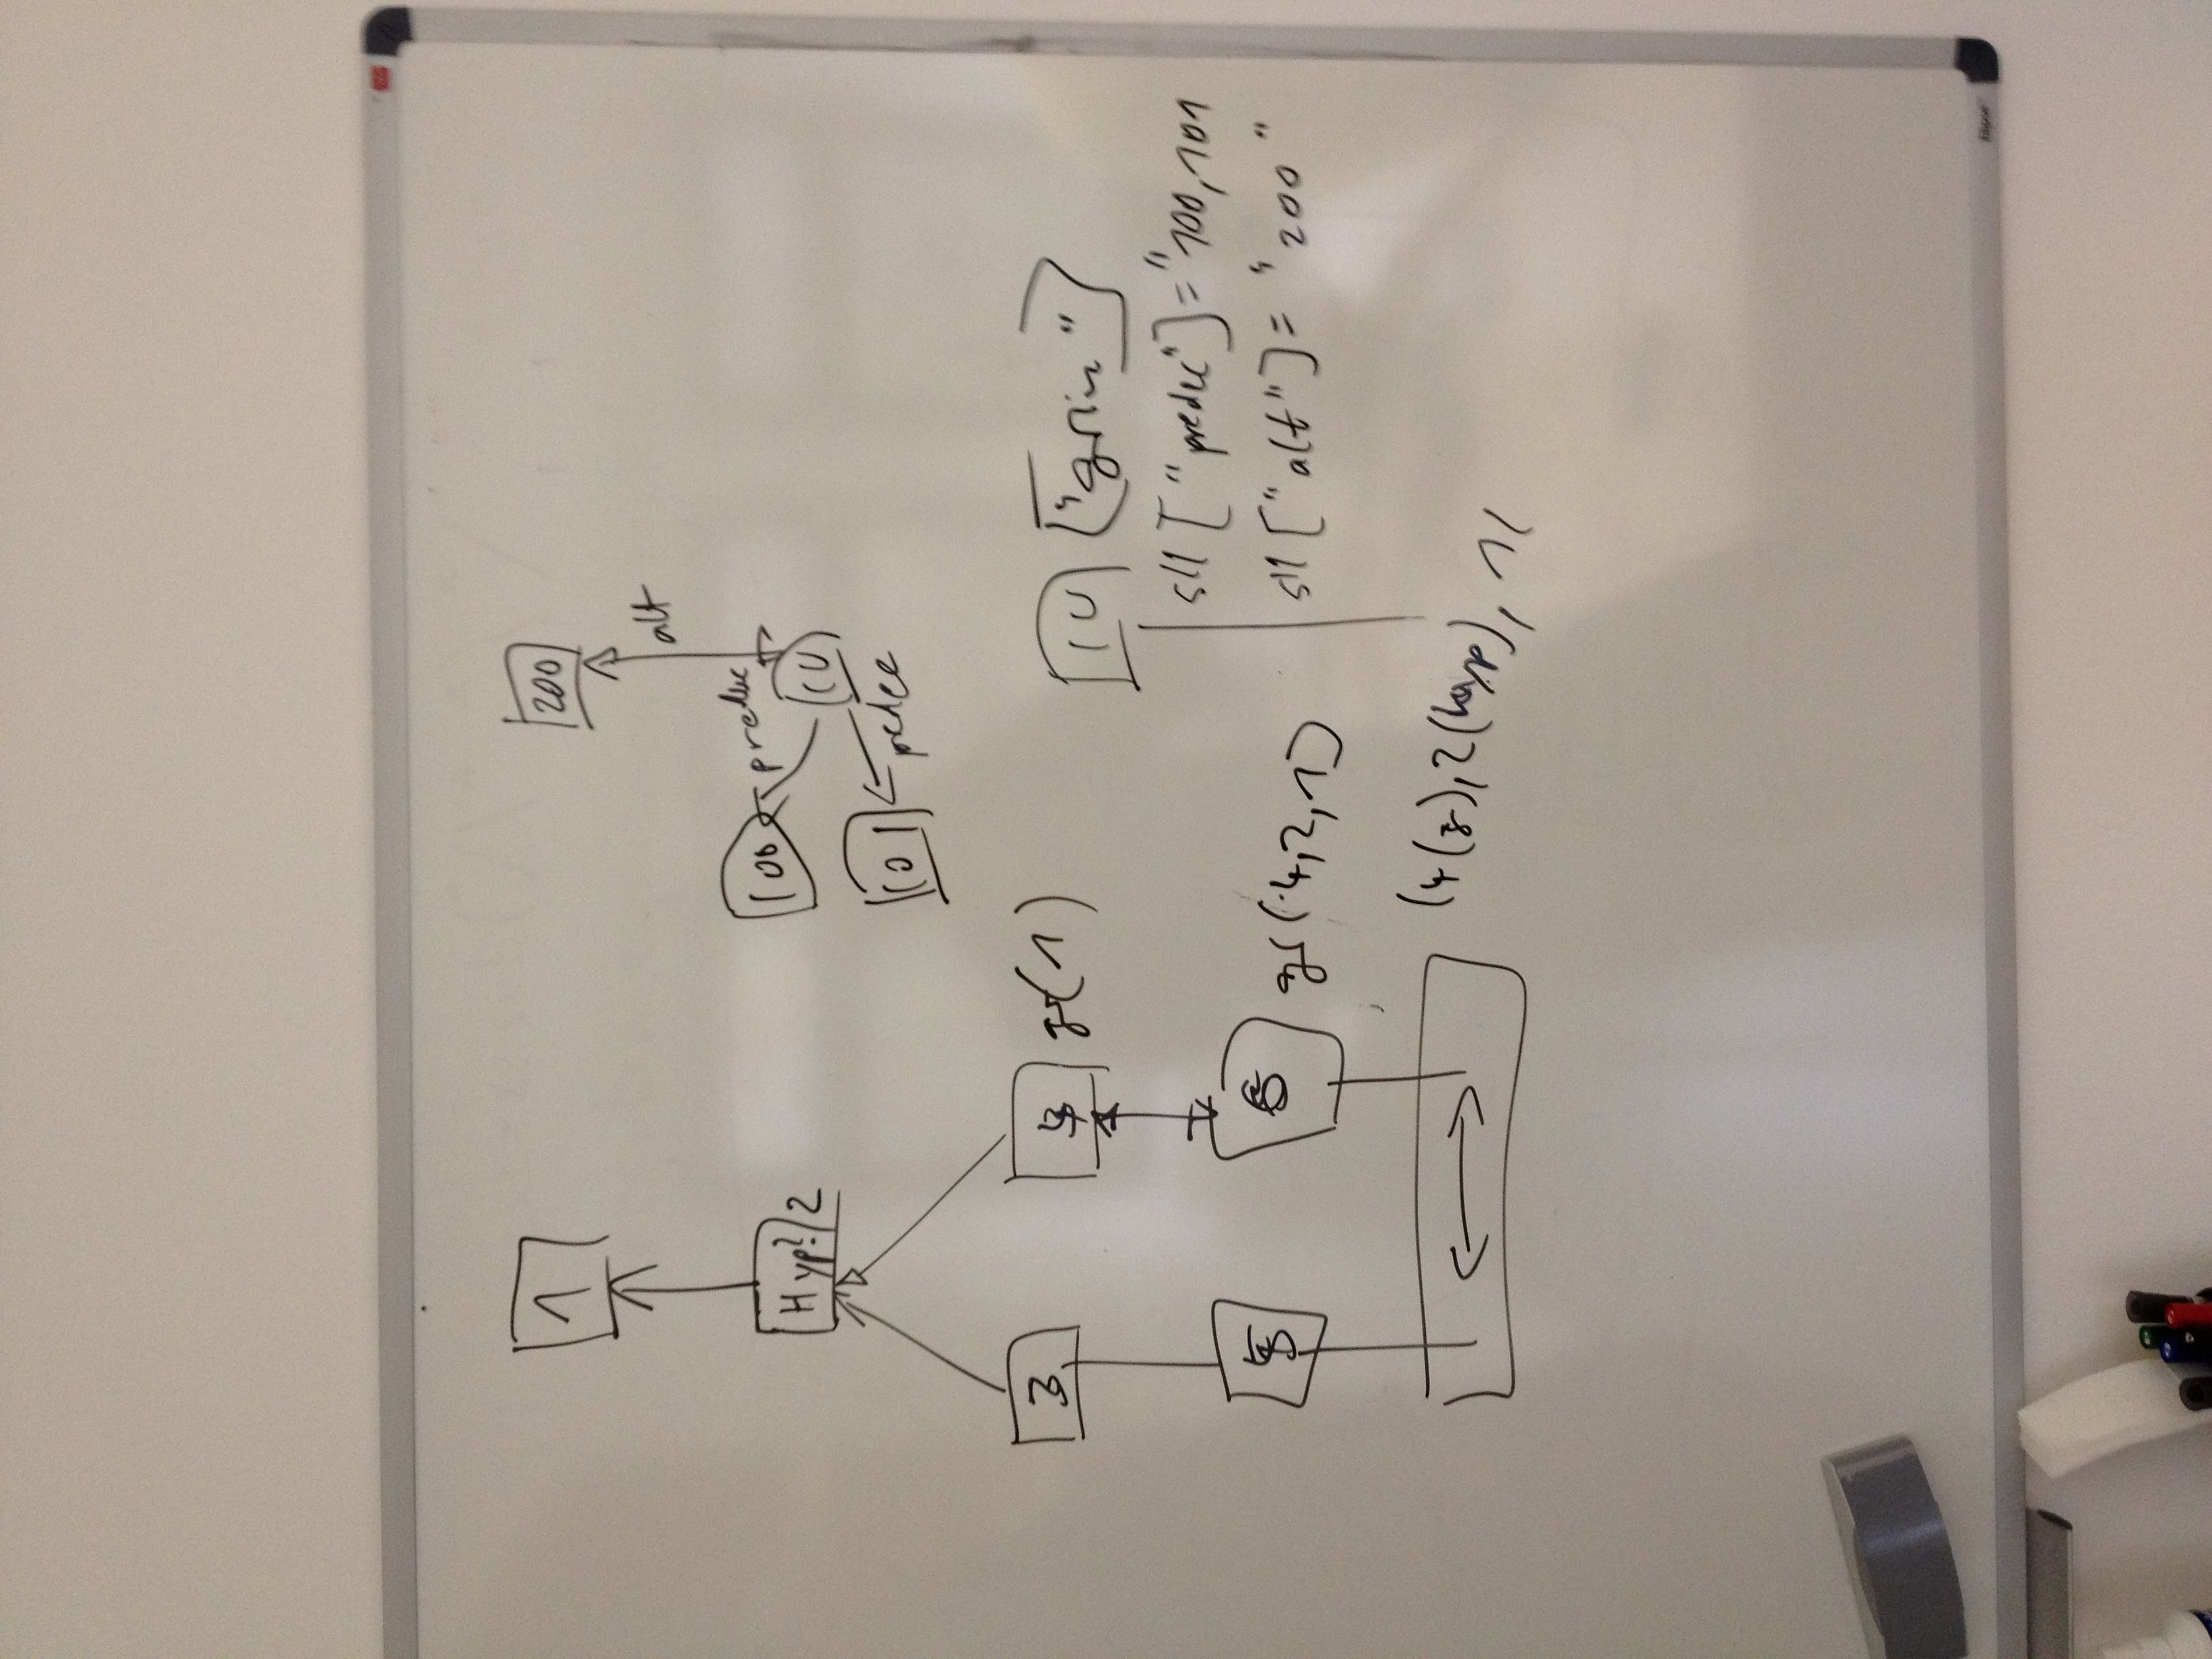 1
Hyp? 2
3
4 gr(1)
5
6 gr(4,2,1)
(4(g),2(hyp), 1(
200
alt
100 predec
10
101 predec
10 ["grin"]
sll ["predec"]="100,101
sll ["alt"]= "200"